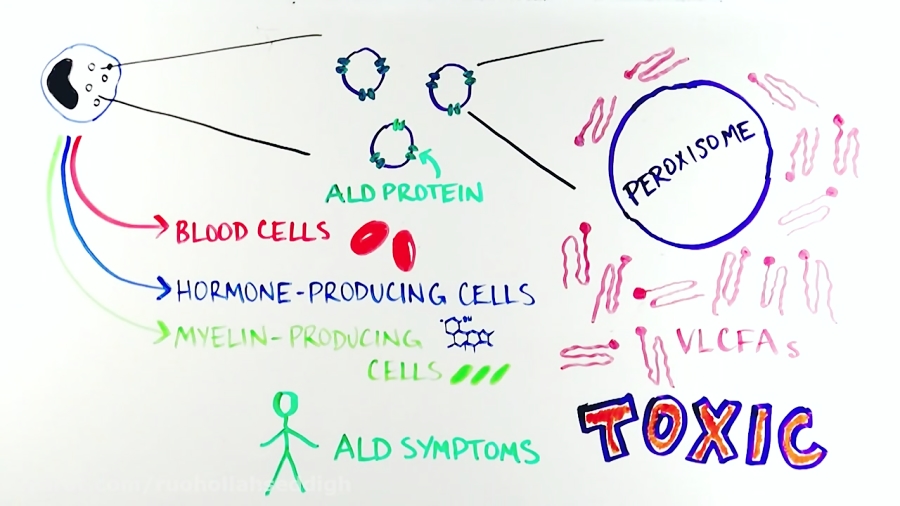 PEROXISOME
ALD PROTEIN
BLOOD CELLS
HORMONE-PRODUCING CELLS
MYELIN-PRODUCING
CELLS
VLCFAs
ALD SYMPTOMS
TOXIC